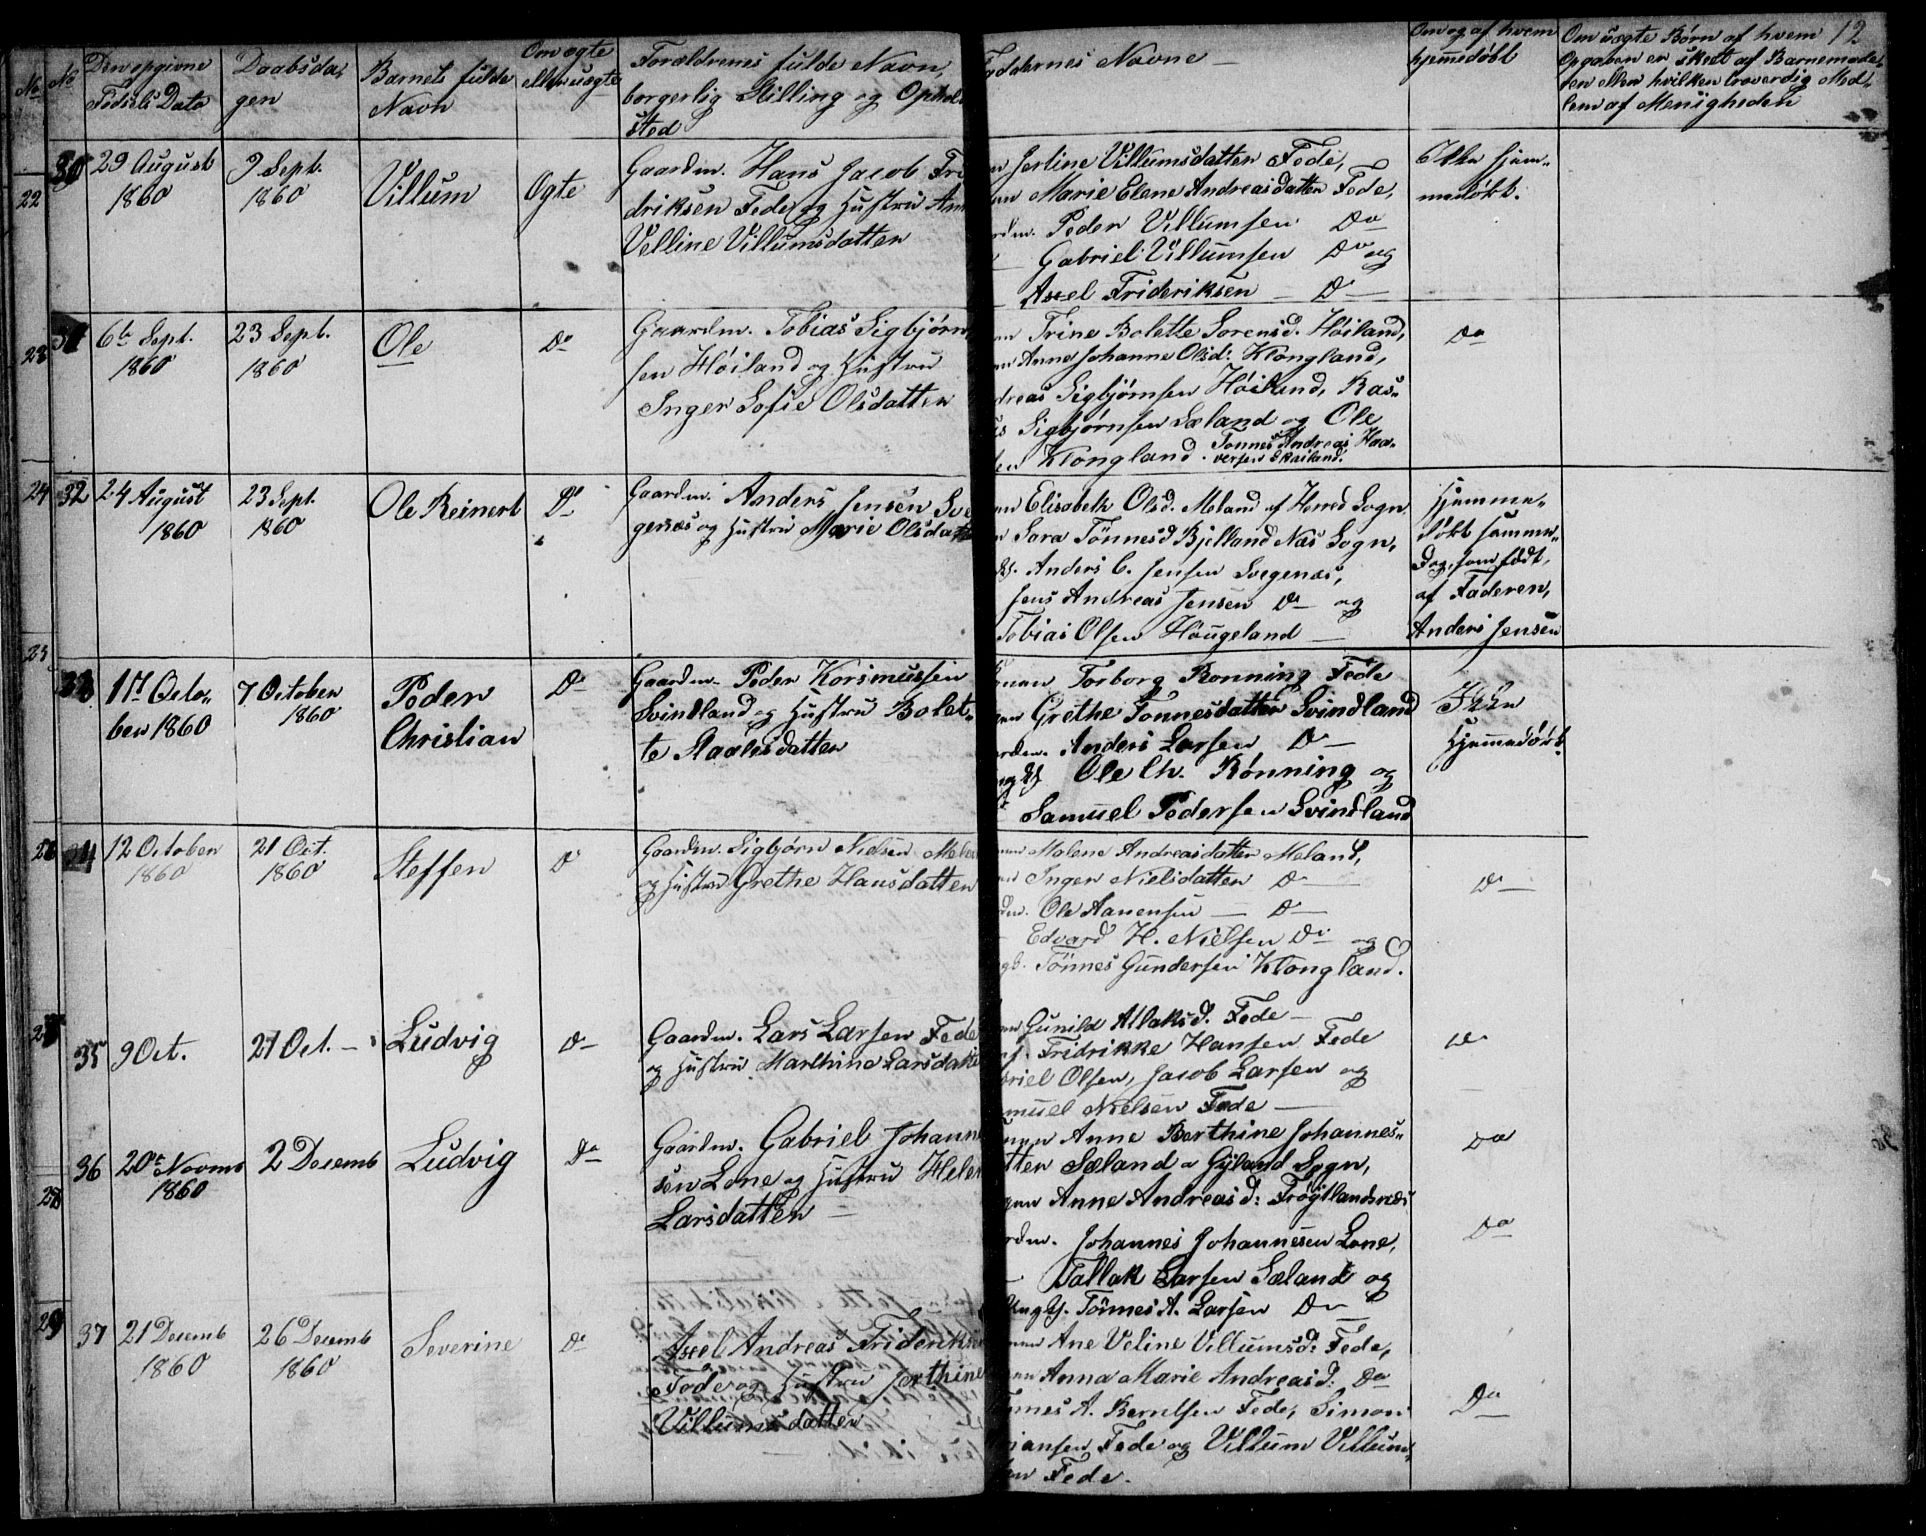 12
No
No
Den opgivne
Fødsels Dato
Daabsda-
gen
Barnets fulde
Navn
Om ægte
eller uægte
Forældrenes fulde Navn,
borgerlig Stilling og Opholds
sted
Faddernes Navne
Om og af hvem
hjemmedøbt
Om uægte Børn af hvem
Opgaven er skeet af Barnemode-
ren eller hvilken troverdig Med-
lem af Menigheden
22
30
29 August
1860
9 Sept.
1860
Villum
Ægte
Gaardm. Hans Jacob Fri
driksen Fede og Hustru Ann
Velline Villumsdatter
Jertine Villumsdatter Fede,
Marie Elene Andreasdatter Fede,
Peder Villumsen Do
Gabriel Villumsen Do og
Axel Frideriksen Do
Ikke hjem-
medøbt.
23
31
6te Sept.
1860
23 Sept.
1860
Ole
Do
Gaardm. Tobias Sigbjørn
sen Høiland og Hustru
Inger Sofie Olsdatter
Trine Bolette Sorensd. Høiland,
Anne Johanne Olsd: Klongland,
dreas Sigbjørnsen Høiland, Ras-
Sigbjørnsen Sæland og Ole
Klongland. Tonnes Andreas Haa-
versen Skailand.
Do
24
32
24 August
1860
23 Sept.
1860
Ole Reinert
Do
Gaardm. Anders Jensen Sve
genæs og Hustru Marie Olsdatte
Elisabeth Olsd. Meland af Herred Sogn
Sara Tönnesd Bjelland Næs Sogn,
Anders C. Jensen Svegenæs,
Jens Andreas Jensen Do og
Tobias Olsen Haugeland
Hjemme-
døbt samme
Dag, som født,
af Faderen,
Anders Jensen
25
33
1st Octo-
ber 1860
7 October
1860
Peder
Christian
Do
Gaardm. Peder Korsmussen
Svindland og Hustru Bolet-
te Staalesdatter
Torborg Rønning Fede
Grethe Tonnesdatter Svindland
Anders Larsen Do
Ole Ch. Rønning og
Samuel Pedersen Svindland
Ikke
Hjemmedøbt.
26
34
12 October
1860
21 Oct.
1860
Steffen
Do
Gaardm. Sigbjørn Nielsen Melan
og Hustru Grethe Hansdatter
Malene Andreasdatter Meland,
Inger Nielsdatter Do
Ole Aanensen Do
Edvard H. Nielsen Do og
Tönnes Gundersen Klongland.
Do
35
9 Oct.
21 Oct.
Ludvig
Do
Gaardm. Lars Larsen Fede
og Hustru Marthine Larsdatte
Gunild Atlaksd. Fede
Fridrikke Hansen Fede
briel Olsen, Jacob Larsen og
muel Nielsen Fede
Do
28
36
20de Novmb
1860
2 Decemb
Ludvig
Do
Gaardm. Gabriel Johanne
sen Lone og Hustru Helen
Larsdatter
Anne Berthine Johannes-
tter Sæland a Gyland Sogn,
Anne Andreasd: Frøytlandsnæs
Johannes Johannesen Lone,
Tallak Larsen Sæland og
Ung. Tönnes A. Larsen Do
Do
Do
29
37
21 Decemb
1860
26 Decemb
1860
Severine
Do
Axel Andreas Frideriksen
Fede og Hustru Jerthine
Villumsdatter
Ane Veline Villumsd: Fede,
Anna Marie Andreasd. Do
nnes A. Berntsen Fede, Simon
iansen Fede og Villum Villum-
sen Fede.
Do